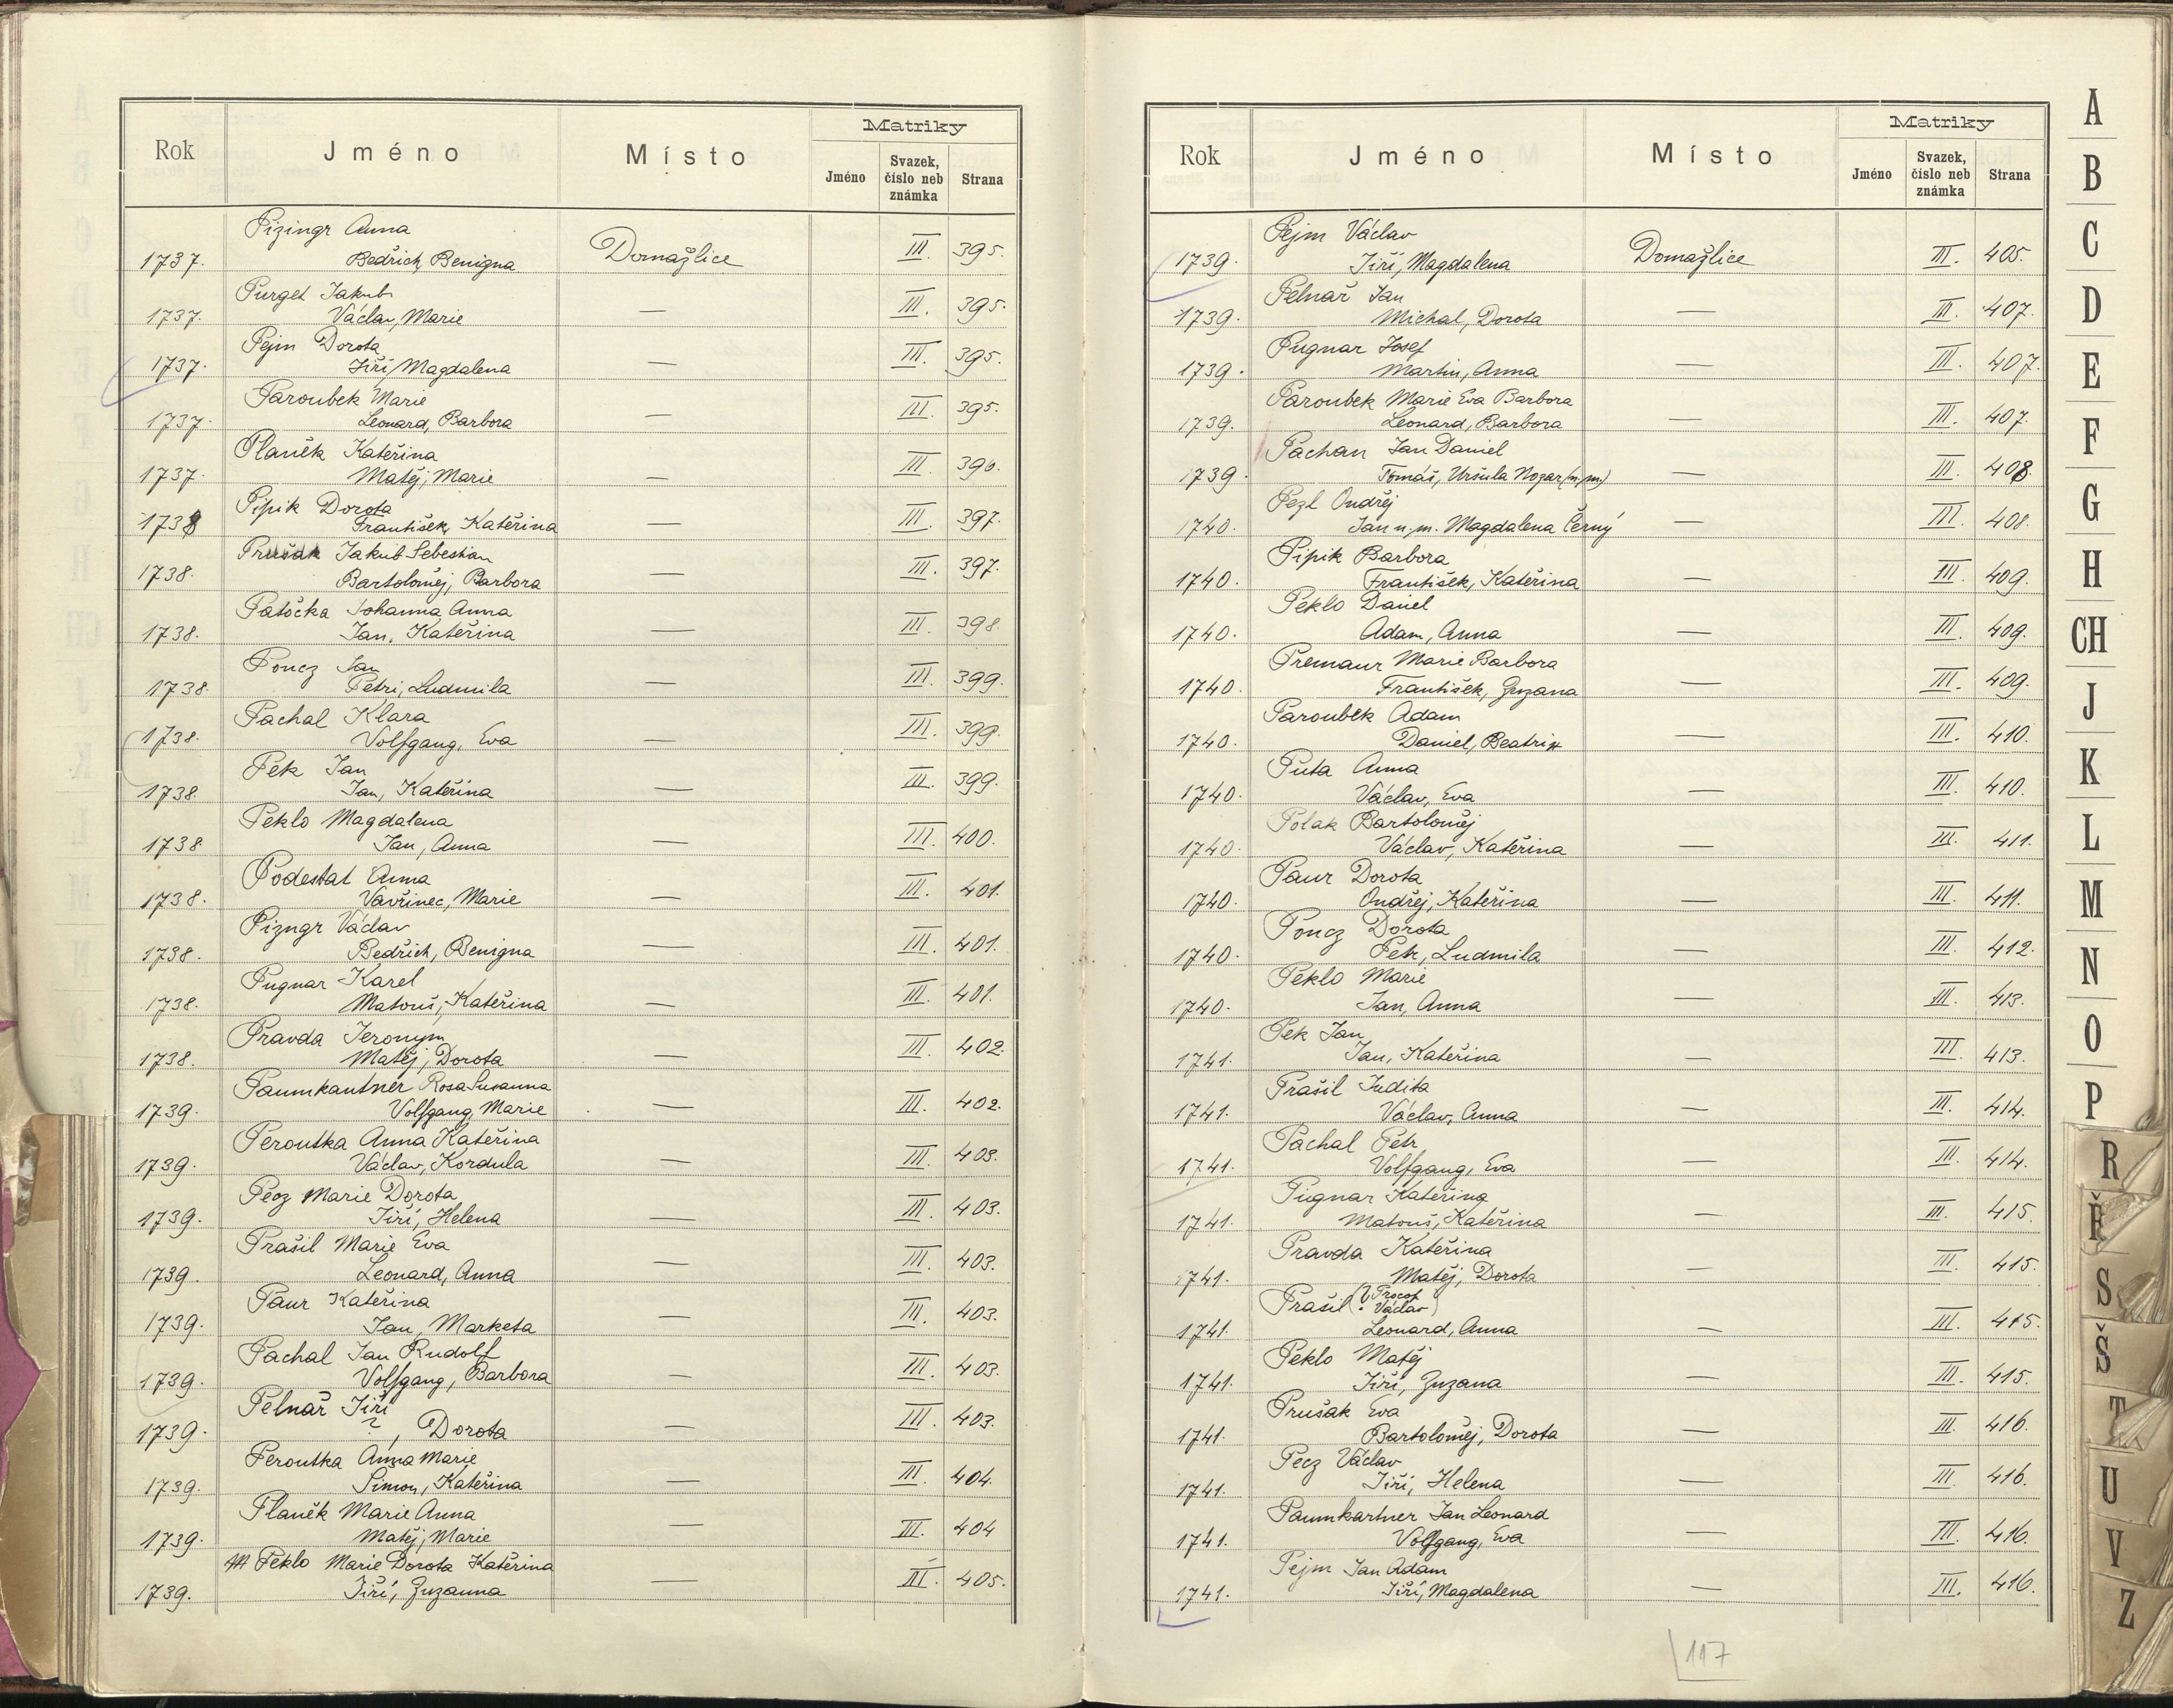 Matriky
Rok Jméno Místo Jméno Svazek, číslo neb známka Strana
Pizingr Anna
1737. Bedřich, Benigna Domažlice III. 395.
Purget Jakub
1737. Václav, Marie — III. 395.
Pejm Dorota
1737. Jiří, Magdalena — III. 395.
Paroubek Marie
1737. Leonard, Barbora — III. 395.
Planěk Kateřina
1737. Matěj, Marie — III. 396.
Pipik Dorota
1738 František, Kateřina — III. 397.
Prušak Jakub Sebestian
1738. Bartoloměj, Barbora — III. 397.
Patočka Johanna Anna
1738. Jan, Kateřina — III. 398.
Poncz Jan
1738. Petri, Ludmila — III. 399.
Pachal Klara
1738. Volfgang, Eva — III. 399.
Pek Jan
1738. Jan, Kateřina — III. 399.
Peklo Magdalena
1738 Jan, Anna — III. 400.
Podestat Anna
1738. Vavřinec, Marie — III. 401.
Pizngr Václav
1738. Bedřich, Benigna — III. 401.
Pugnar Karel
1738. Matouš, Kateřina — III. 401.
Pravda Jeronym
1738. Matěj, Dorota — III. 402.
Paumkantner Rosa Susanna
1739. Volfgang, Marie — III. 402.
Peroutka Anna Kateřina
1739. Václav, Kordula — III. 403.
Pecz Marie Dorota
1739. Jiří, Helena — III. 403.
Prašil Marie Eva
1739. Leonard, Anna — III. 403.
Paur Kateřina
1739. Jan, Marketa — III. 403.
Pachal Jan Rudolf
1739. Volfgang, Barbora — III. 403.
Pelnař Jiří
1739. ?, Dorota — III. 403.
Peroutka Anna Marie
1739. Šimon, Kateřina — III. 404.
Planěk Marie Anna
1739. Matěj, Marie — III. 404
Peklo Marie Dorota Kateřina
1739. Jiří, Zuzanna — III. 405.
Matriky
Rok Jméno Místo Jméno Svazek, číslo neb známka Strana
Pejm Václav
1739. Jiří, Magdalena Domažlice III. 405.
Pelnař Jan
1739. Michal, Dorota — III. 407.
Pugnar Josef
1739. Martin, Anna — III. 407.
Paroubek Marie Eva Barbora
1739. Leonard, Barbora — III. 407.
Pachan Jan Daniel
1739. Tomáš, Uršula Nozar (n. m.) — III. 408.
Pezl Ondřej
1740. Jan n. m. Magdalena Černý — III. 408.
Pipik Barbora
1740. František, Kateřina — III. 409.
Peklo Daniel
1740. Adam, Anna — III. 409.
Premaur Marie Barbora
1740. František, Zuzana — III. 409.
Paroubek Adam
1740. Daniel, Beatrix — III. 410.
Puta Anna
1740. Václav, Eva — III. 410.
Polak Bartoloměj
1740. Václav, Kateřina — III. 411.
Paur Dorota
1740. Ondřej, Kateřina — III. 411.
Poncz Dorota
1740. Petr, Ludmila — III. 412.
Peklo Marie
1740. Jan, Anna — III. 413.
Pek Jan
1741. Jan, Kateřina — III. 413.
Prašil Judita
1741. Václav, Anna — III. 414.
Pachal Petr
1741. Volfgang, Eva — III. 414.
Pugnar Kateřina
1741. Matouš, Kateřina — III. 415.
Pravda Kateřina
1741. Matěj, Dorota — III. 415.
Prašil (? Procop Václav)
1741. Leonard, Anna — III. 415.
Peklo Matěj
1741. Jiří, Zuzana — III. 415.
Prušak Eva
1741. Bartoloměj, Dorota — III. 416.
Pecz Václav
1741. Jiří, Helena — III. 416.
Paumkartner Jan Leonard
1741. Volfgang, Eva — III. 416.
Pejm Jan Adam
1741. Jiří, Magdalena — III. 416.
117
A
B
C
D
E
F
G
H
CH
J
K
L
M
N
O
P
R
Ř
S
Š
T
U
V
Z